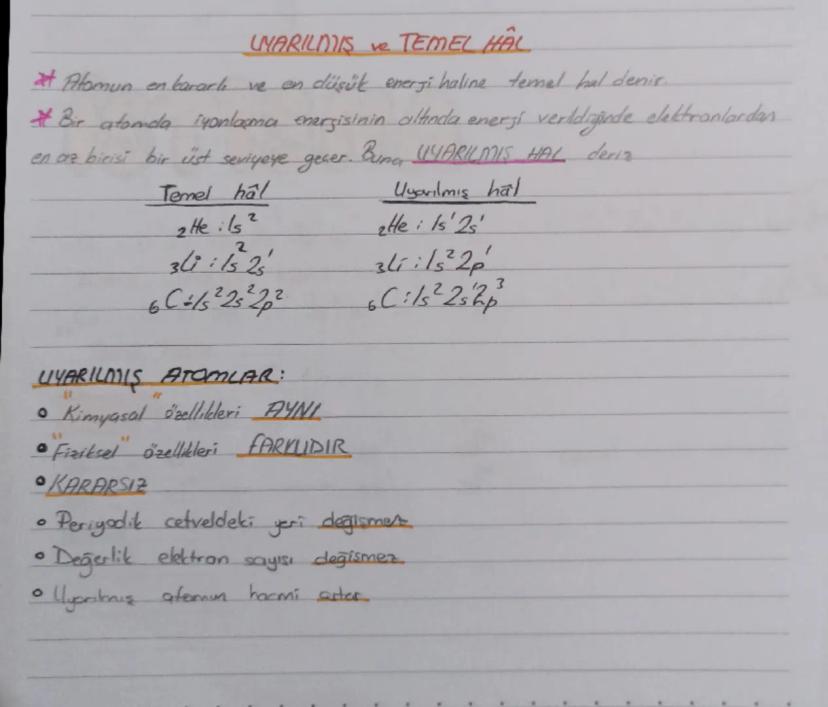 UYARILMIŞ ve TEMEL HÂL
* Atomun en kararlı ve en düşük enerji haline temel hal denir.
* Bir atomda iyonlaşma enerjisinin altında enerji verildiğinde elektronlardan
en az birisi bir üst seviyeye geçer. Buna UYARILMIŞ HAL deriz
Temel hâl Uyarılmış hâl
₂He : 1s² ₂He : 1s¹ 2s¹
₃Li : 1s² 2s¹ ₃Li : 1s² 2p¹
₆C : 1s² 2s² 2p² ₆C : 1s² 2s¹ 2p³
UYARILMIŞ ATOMLAR:
• "Kimyasal" özellikleri AYNI
• "Fiziksel" özellikleri FARKLIDIR
• KARARSIZ
• Periyodik cetveldeki yeri değişmez
• Değerlik elektron sayısı değişmez
• Uyarılmış atomun hacmi artar